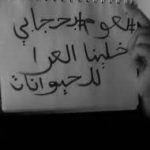 #هوم#حجابي
خلينا العرا
للحيوانات